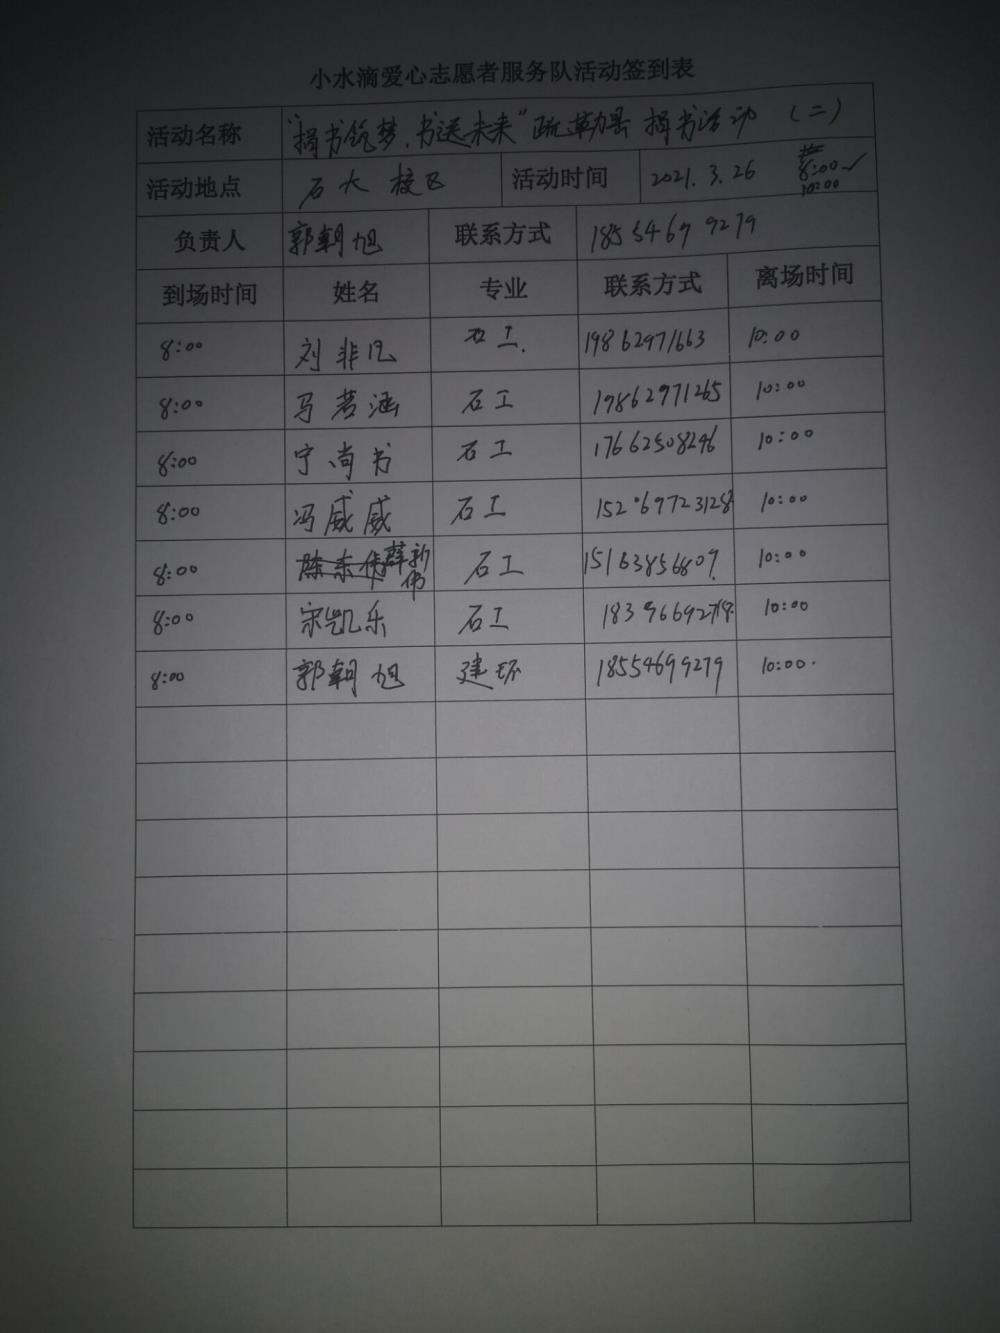 小水滴爱心志愿者服务队活动签到表
活动名称 "捐书筑梦,书送未来"疏勒县 捐书活动 (二)
活动地点 石大校区 活动时间 2021.3.26 8:00 10:00
负责人 郭朝旭 联系方式 18554699279
到场时间 姓名 专业 联系方式 离场时间
8:00 刘非凡 石工. 19862971663 10:00
8:00 马若涵 石工 19862971265 10:00
8:00 宁尚书 石工 17662508246 10:00
8:00 冯威威 石工 15206972312 10:00
8:00 薛新伟 石工 15163856807 10:00
8:00 宋凯乐 石工 183966927 10:00
8:00 郭朝旭 建环 18554699279 10:00.